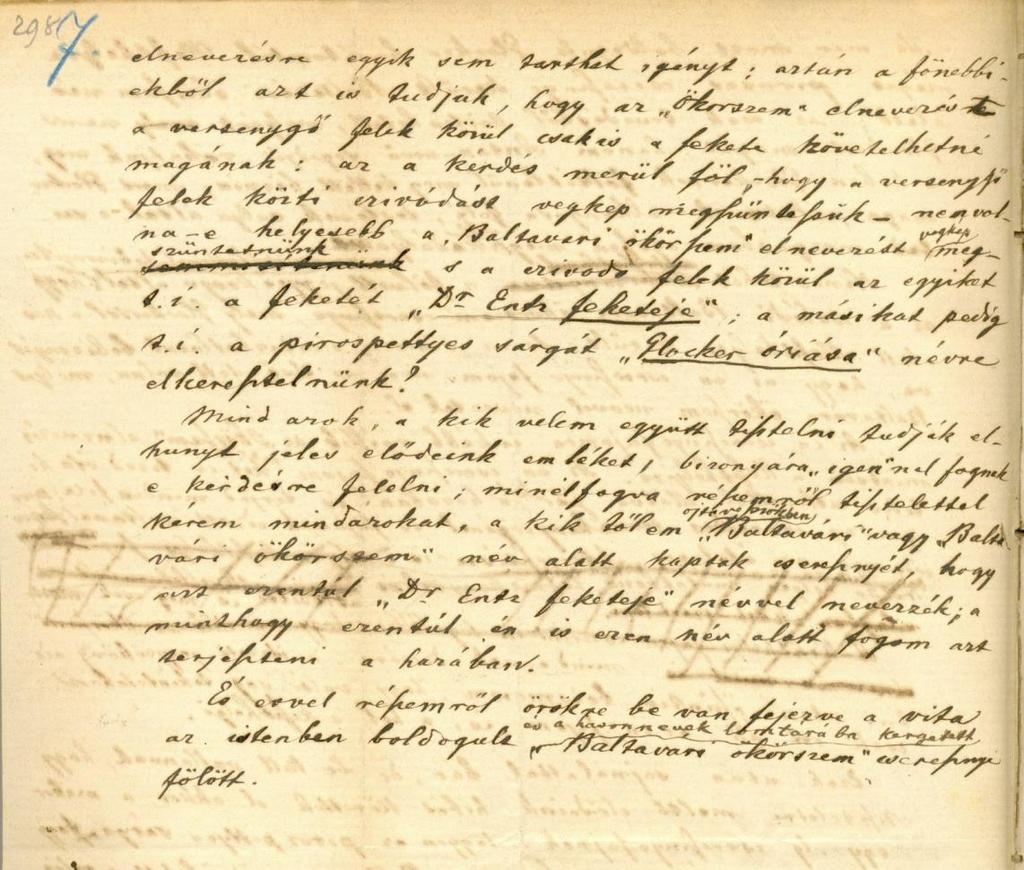 298
7.
elnevezésre egyik sem tarthat igényt; aztán a fönebbi-
ekből azt is tudjuk, hogy az „Ökörszem" elnevezésre
a versenygő felek közül csakis a fekete követelhetné
magának: az a kérdés merül föl, hogy a versenygő
felek közti czivódást vegkep megszüntessük – nemvol-
na-e helyesebb a „Baltavari ökörszem" elnevezést vegkep meg-
szüntetnünk s a czivodo felek közül az egyiket
t.i. a feketét „Dr Entz feketéje"; a másikat pedig
t.i. a pirospettyes sárgát „Glocker óriása" névre
elkeresztelnünk?
Mind azok, a kik velem együtt tisztelni tudják el-
hunyt jeles elődeink emléket, bizonyára „igen"nel fognak
e kérdésre felelni; minélfogva részemről tisztelettel
kérem mindazokat, a kik tőlem ojtóvesszőkben „Baltavári" vagy „Balta-
vári ökörszem" név alatt kaptak cseresznyét, hogy
azt ezentúl „Dr Entz feketéje" névvel nevezzék; a
minthogy ezentúl én is ezen név alatt fogom azt
terjeszteni a hazában.
És ezvel részemről örökre be van fejezve a vita
az istenben boldogult es a hasonnevek lomtarába kergetett „Baltavari ökörszem" cseresznye
fölött.